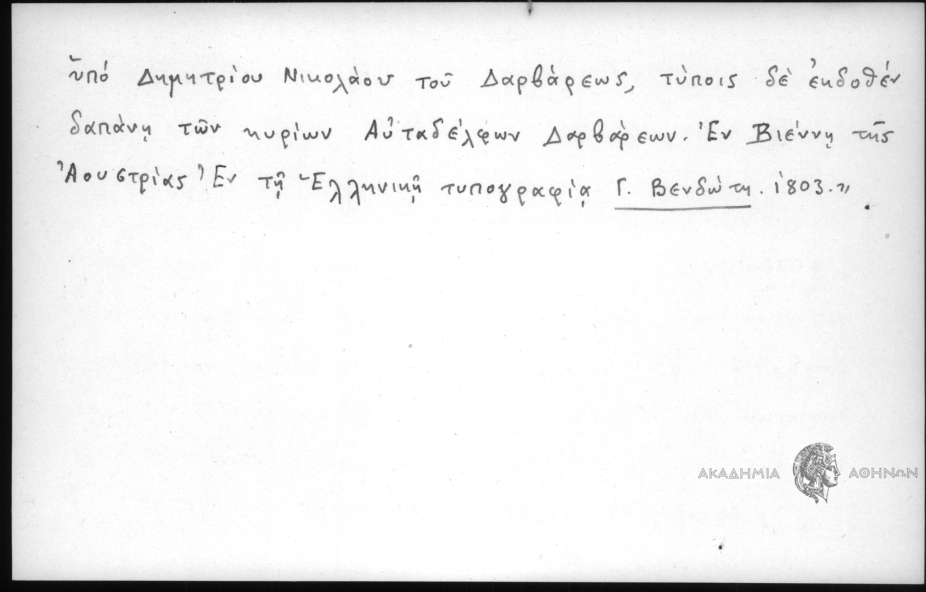 ὑπό Δημητρίου Νικολάου τοῦ Δαρβάρεως, τύποις δὲ ἐκδοθέν
δαπάνῃ τῶν κυρίων Αὐταδέλφων Δαρβάρεων. Ἐν Βιέννῃ τῆς
Ἀουστρίας Ἐν τῇ Ἑλληνικῇ τυπογραφίᾳ Γ. Βενδώτη. 1803.»
ΑΚΑΔΗΜΙΑ ΑΘΗΝΩΝ